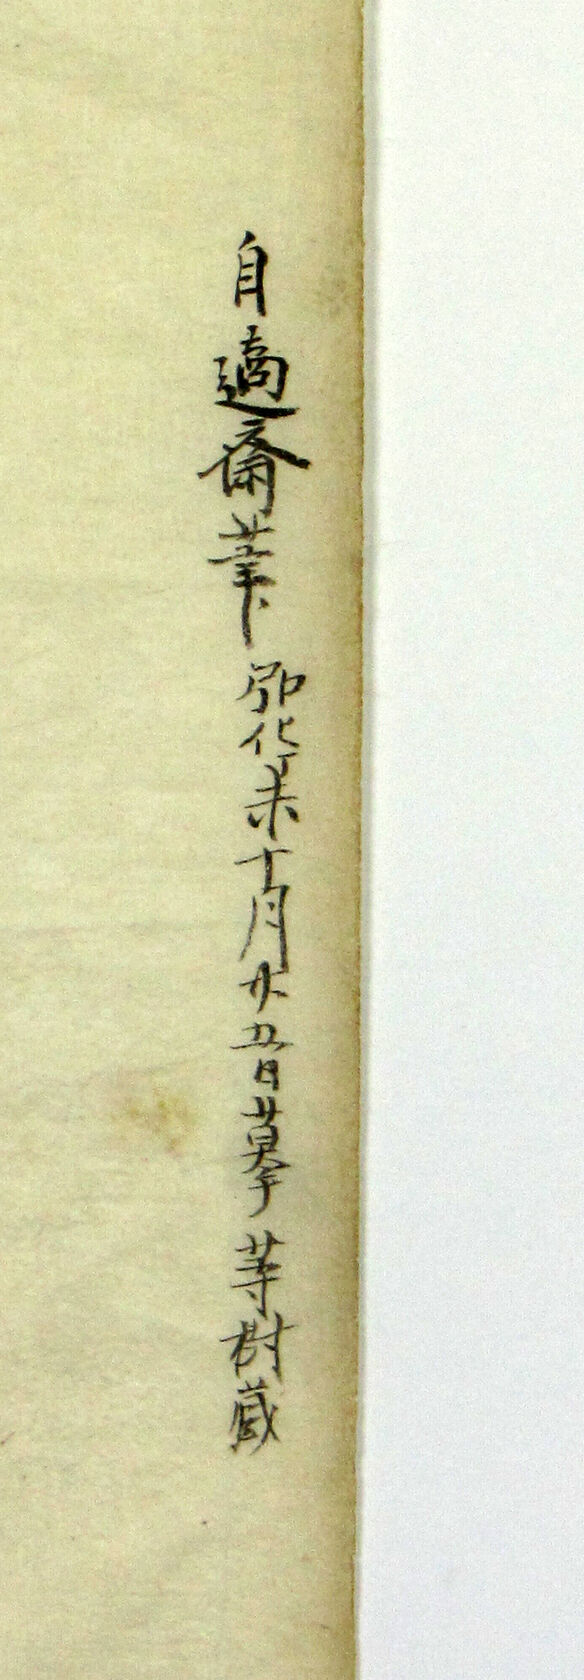 自適齋筆弘化丁未十月廿五日摹等樹蔵